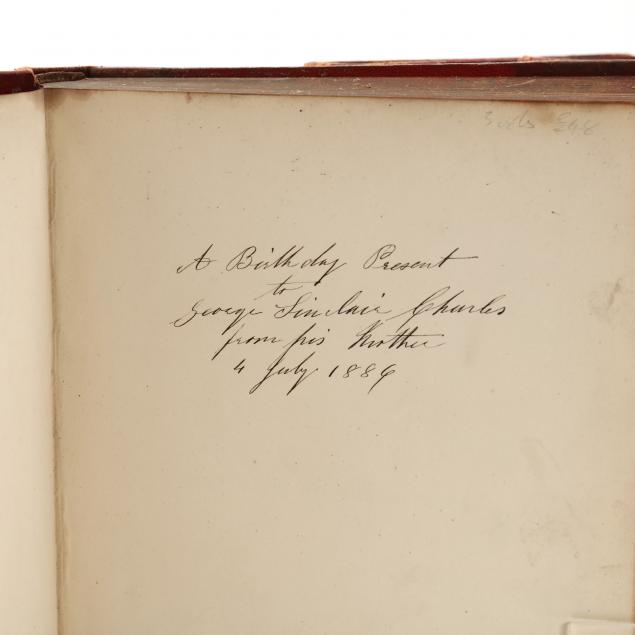 3 vols £48
A Birthday Present
to
George Sinclair Charles
from his Mother
4 July 1886